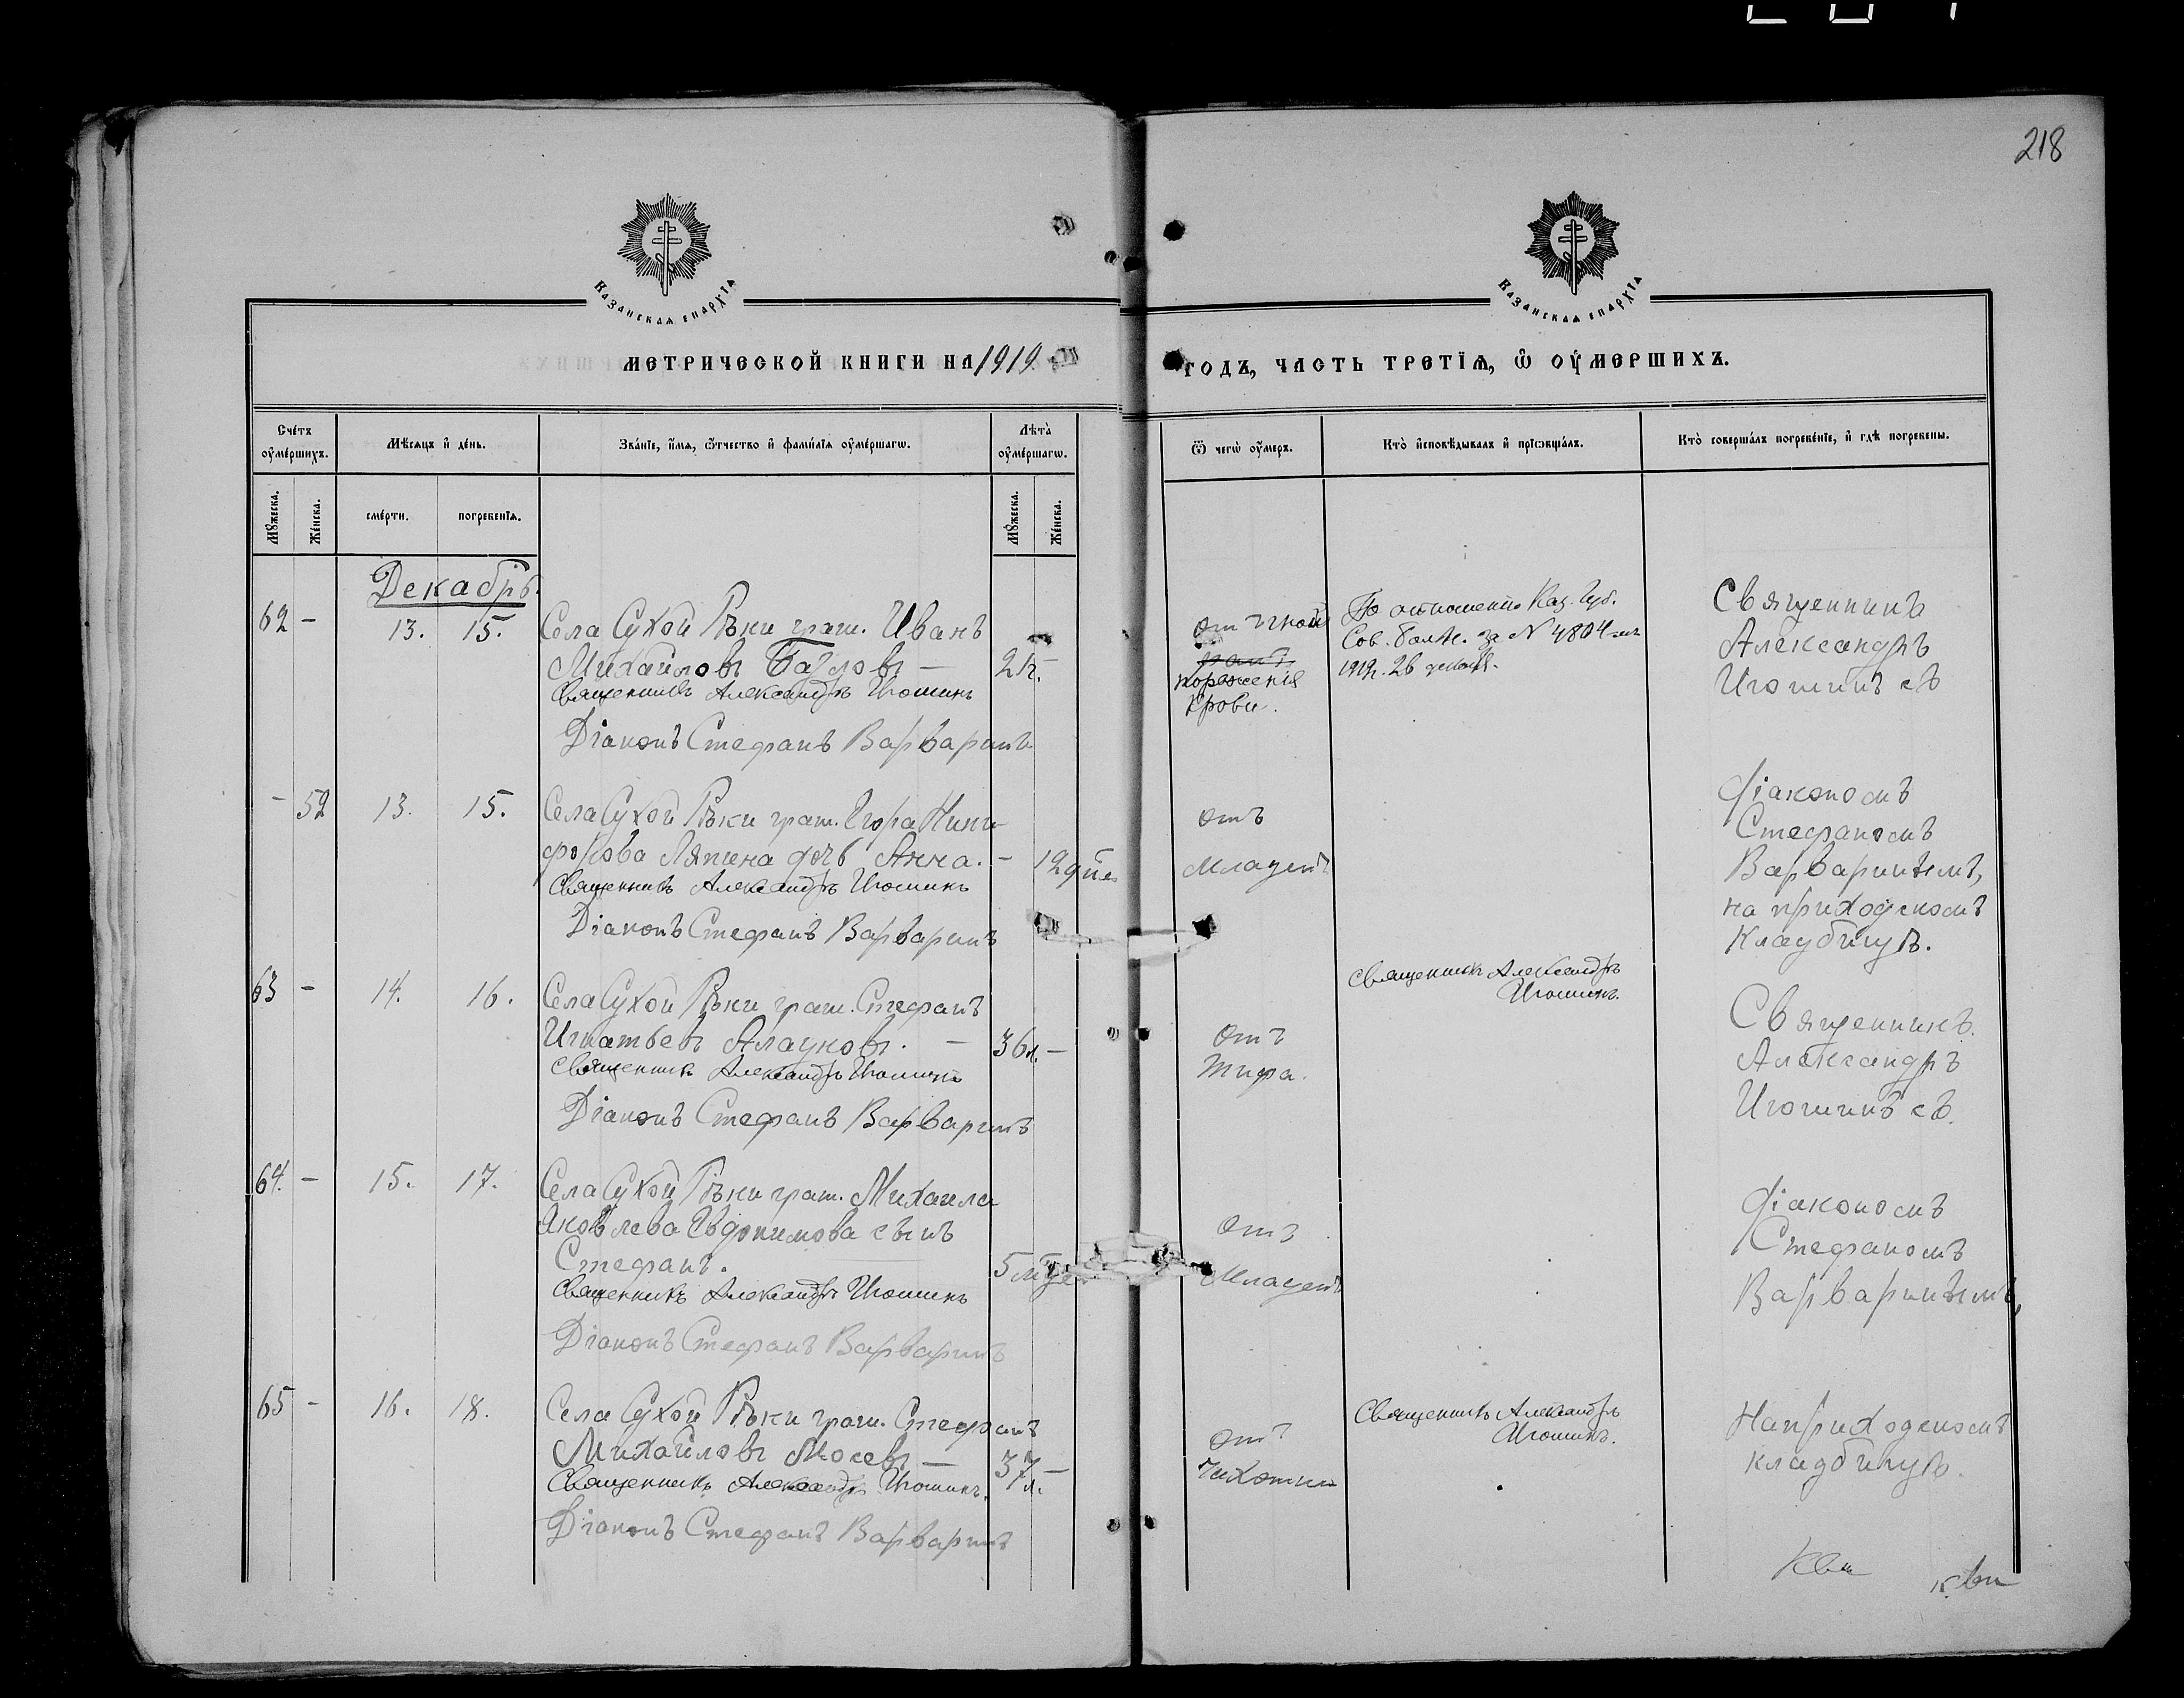 218
Казанская епархїѧ
Казанская епархїѧ
МЕТРИЧЕСКОЙ КНИГИ НА 1919
ГОДЪ, ЧАСТЬ ТРЕТЇѦ, Ѿ ОУМЕРШИХЪ.
Счетъ оумершихъ.
Мѣсяцъ и день.
Званїе, имя, отчество и фамилїя оумершагѡ.
Лѣта оумершагѡ.
Ѿ чегѡ оумеръ.
Кто исповѣдывалъ и прїобщалъ.
Кто совершалъ погребенїе, и гдѣ погребены.
Мужеска.
Женска.
смерти.
погребенїя.
Мужеска.
Женска.
Декабрь.
62 – 13. 15. Села Сухой Рѣки граж. Иванъ
Михайловъ –
Священникъ Александръ Игошинъ
Дiаконъ Стефанъ Варваринъ
поражения
крови.
По отношенiю Каз. Губ.
Сов. № 4804
1919г. 26
Священникъ
Александръ
Игошинъ съ
– 52 13. 15. Села Сухой Рѣки граж. Егора Ники-
форова Ляпина дочь Анна. – 12 дней
Священникъ Александръ Игошинъ
Дiаконъ Стефанъ Варваринъ
отъ
младен.
дiакономъ
Стефаномъ
Варваринымъ,
на приходскомъ
кладбищѣ.
63 – 14. 16. Села Сухой Рѣки граж. Стефанъ
Игнатьевъ – 36 л. –
Священникъ Александръ Игошинъ
Дiаконъ Стефанъ Варваринъ
отъ
тифа.
Священникъ Александръ
Игошинъ.
Священникъ
Александръ
Игошинъ съ
64. – 15. 17. Села Сухой Рѣки граж. Михаила
Яковлева Евдокимова сынъ
Стефанъ.
Священникъ Александръ Игошинъ
Дiаконъ Стефанъ Варваринъ
отъ
младен.
дiакономъ
Стефаномъ
Варваринымъ,
65 – 16. 18. Села Сухой Рѣки граж. Стефанъ
Михайловъ – 37 л. –
Священникъ Александръ Игошинъ.
Дiаконъ Стефанъ Варваринъ
отъ
чахотки
Священникъ Александръ
Игошинъ.
На приходскомъ
кладбищѣ.